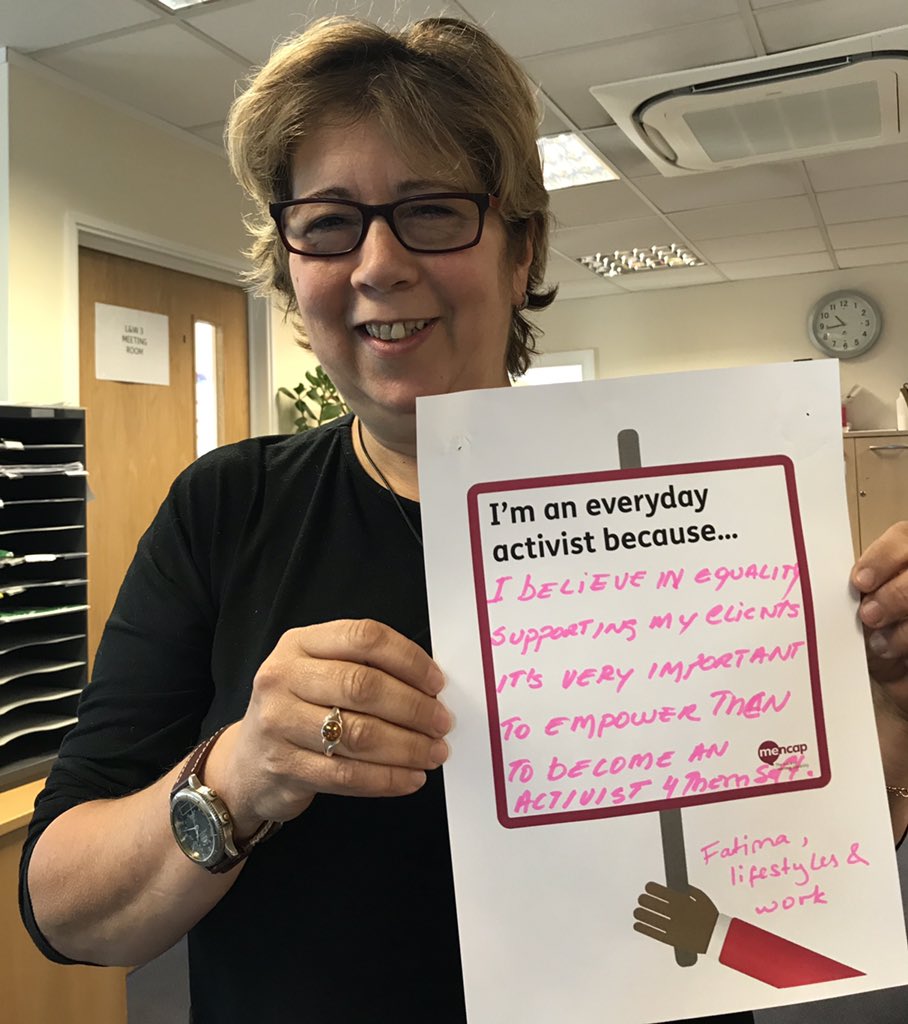 L&W 3
MEETING
ROOM
I'm an everyday
activist because...
I BELIEVE IN EQUALITY
SUPPORTING MY CLIENTS
IT'S VERY IMPORTANT
TO EMPOWER THEN
TO BECOME AN
mencap
ACTIVIST 4 THEMSELF.
Fatima,
lifestyles &
work